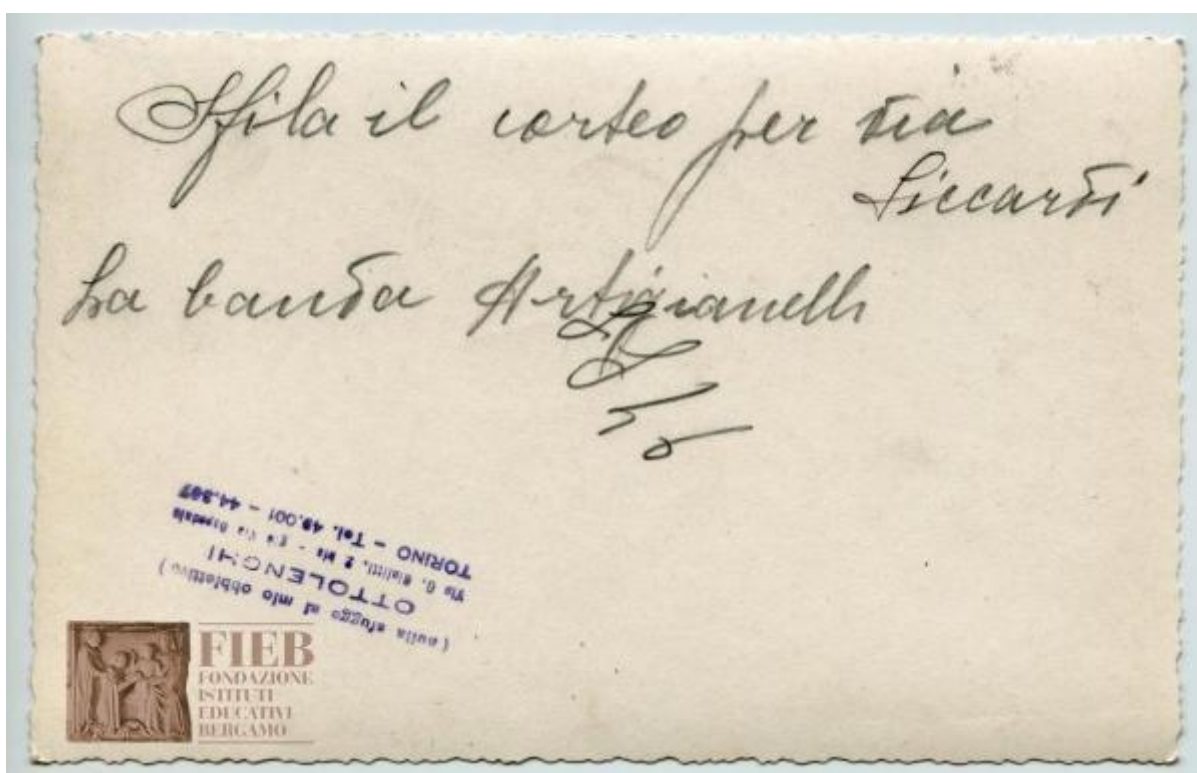 Sfila il corteo per via
Siccardi
La banda Artigianelli
( nulla sfugge al mio obbiettivo )
OTTOLENGHI
Via G. Giolitti, 2 bis - già Via Ospedale
TORINO - Tel. 49.001 - 44.367
FIEB
FONDAZIONE
ISTITUTI
EDUCATIVI
BERGAMO